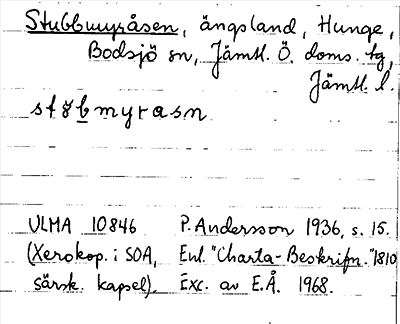 Stubbmyråsen, ängsland, Hunge,
Bodsjö sn, Jämtl. Ö. doms. tg,
Jämtl. l.
støbmyrasn
ULMA 10846 P. Andersson 1936, s. 15.
(Xerokop. i SOA, Enl. "Charta-Beskrifn." 1810
särsk. kapsel). Exc. av E.Å. 1968.